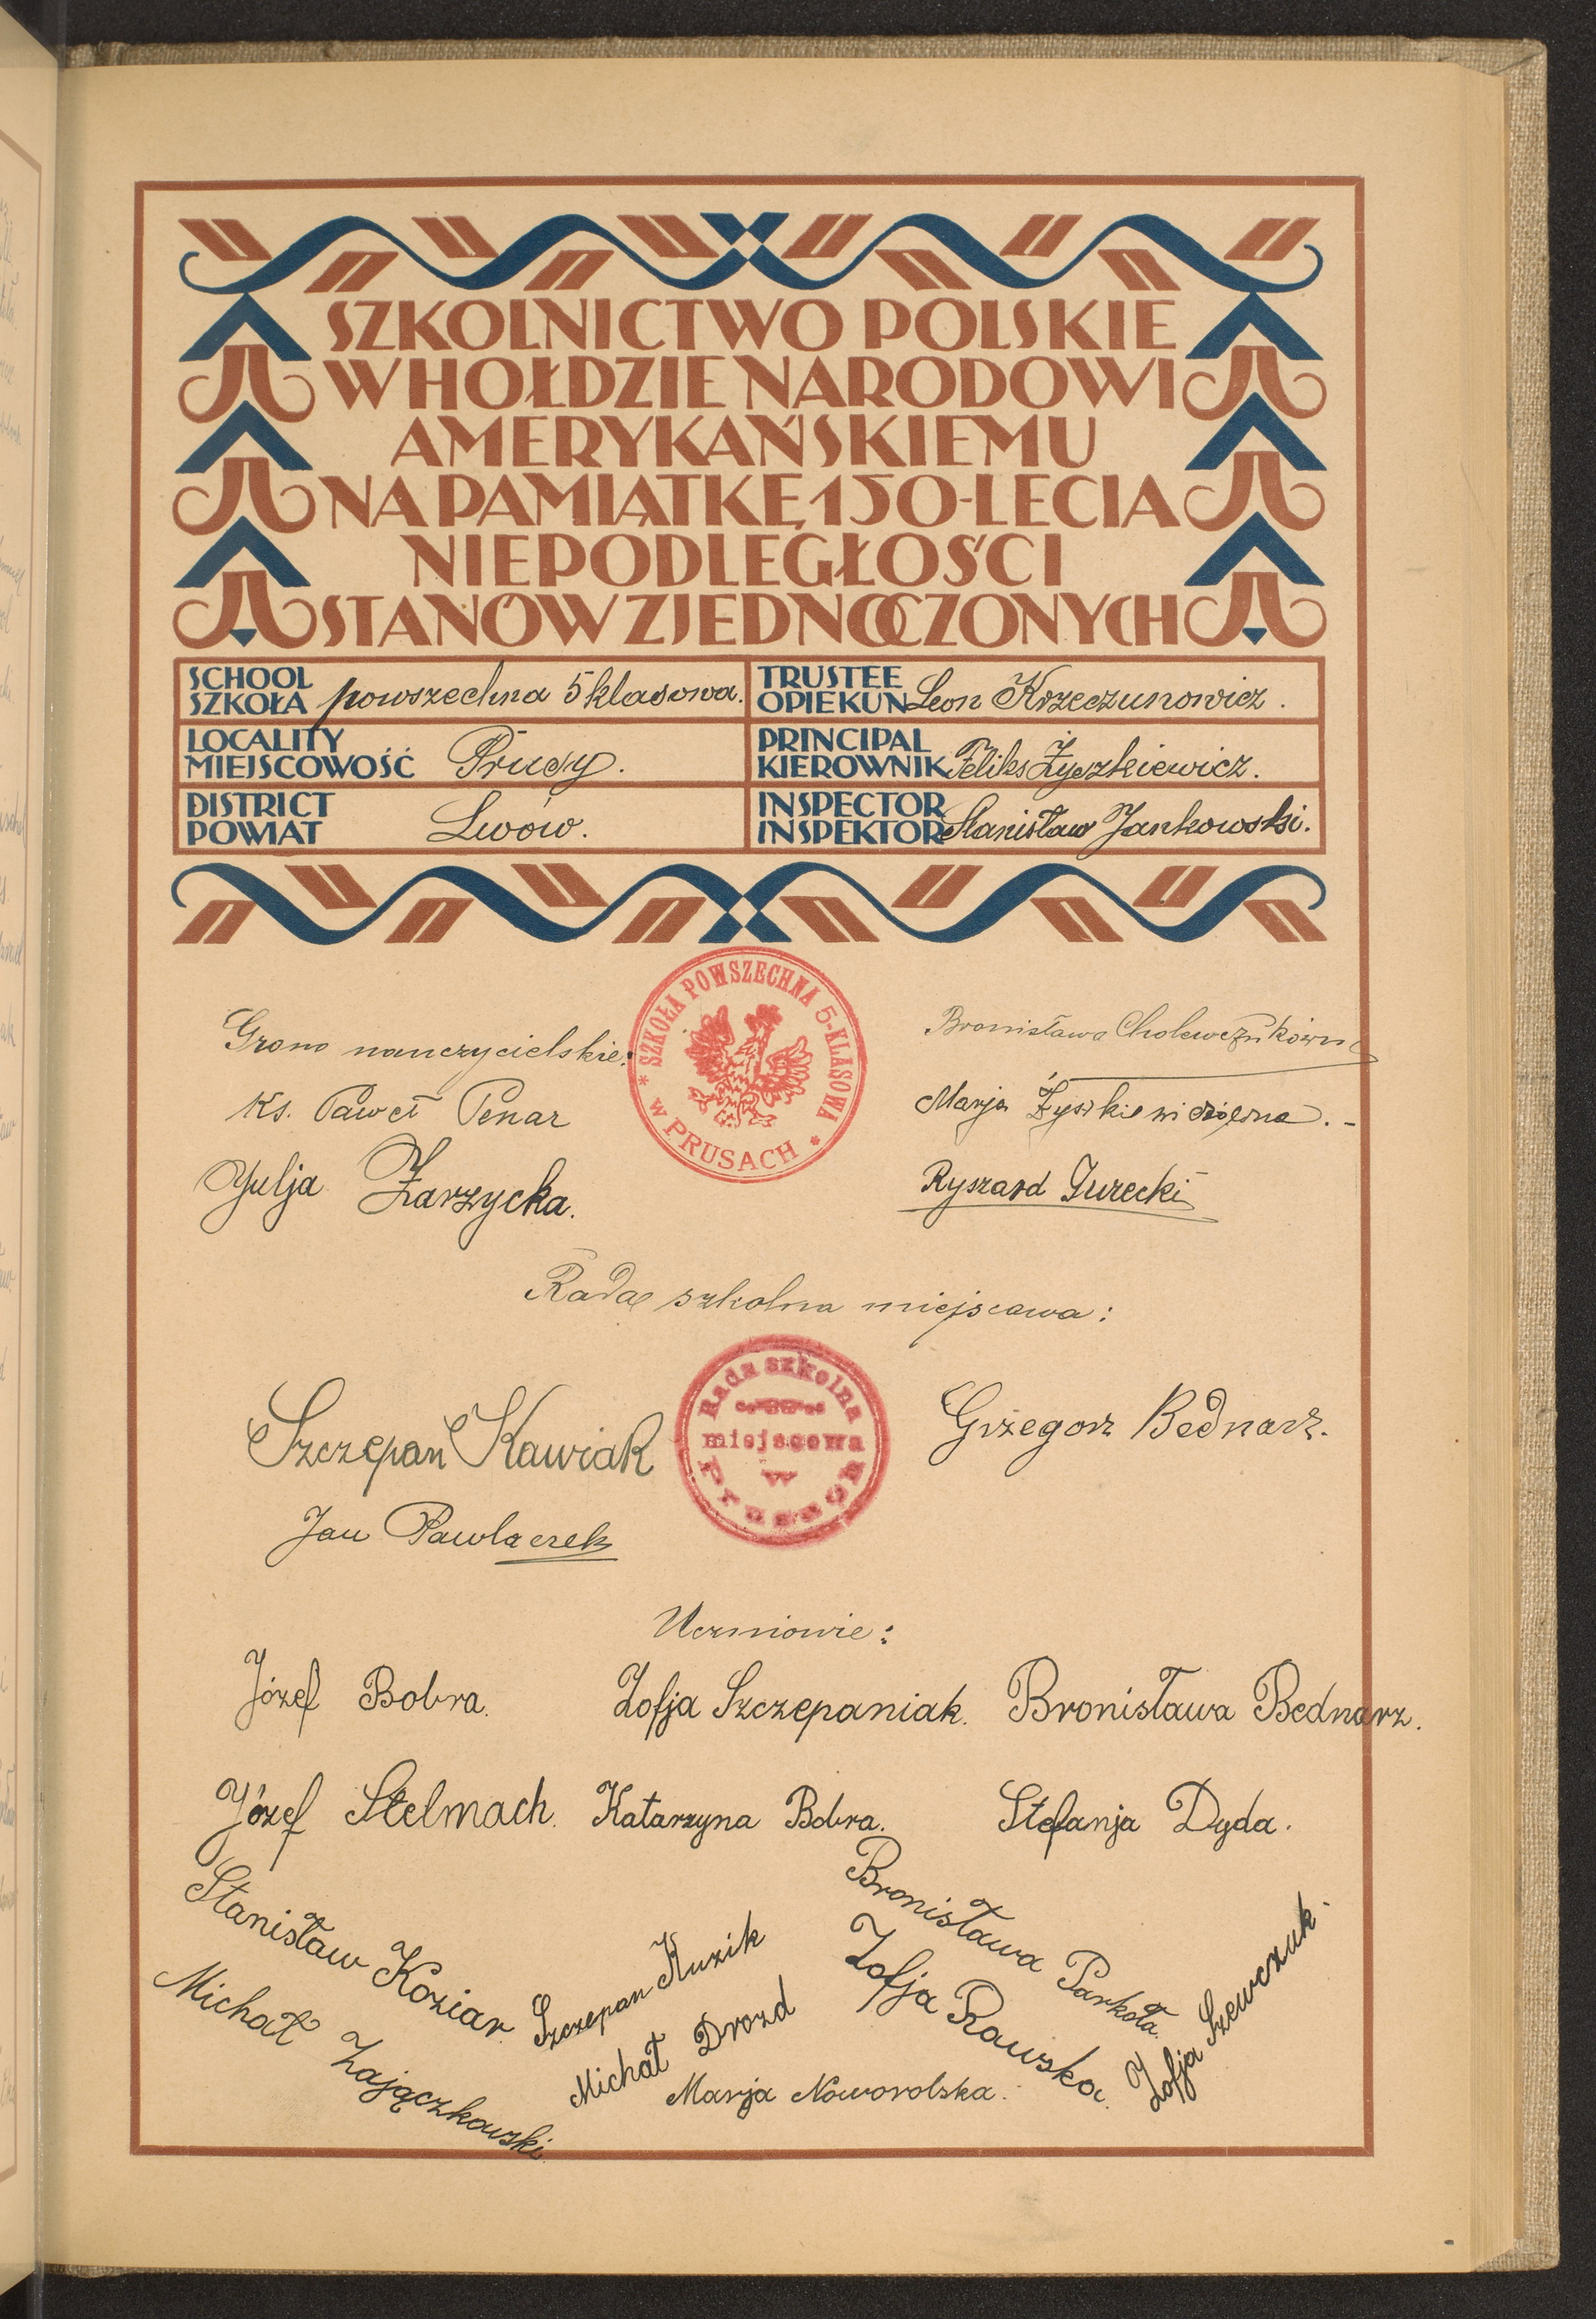 SZKOLNICTWO POLSKIE
W HOŁDZIE NARODOWI
AMERYKAŃSKIEMU
NA PAMIĄTKĘ 150-LECIA
NIEPODLEGŁOŚCI
STANÓW ZJEDNOCZONYCH
SCHOOL
SZKOŁA powszechna 5 klasowa.
TRUSTEE
OPIEKUN Leon Krzeczunowicz.
LOCALITY
MIEJSCOWOŚĆ Prusy.
PRINCIPAL
KIEROWNIK Feliks Żyszkiewicz.
DISTRICT
POWIAT Lwów.
INSPECTOR
INSPEKTOR Stanisław Jankowski.
* SZKOŁA POWSZECHNA 5-KLASOWA *
W PRUSACH
Grono nauczycielskie:
Ks. Paweł Penar
Julja Zarzycka.
Bronisława
Marja
Ryszard Jurecki
Rada szkolna miejscowa:
Rada szkolna
miejscowa
w
Prusach
Szczepan Kawiak
Grzegorz Bednarz.
Jan Pawlaczek
Uczniowie:
Józef Bobra.
Zofja Szczepaniak.
Bronisława Bednarz.
Józef Stelmach.
Katarzyna Bobra.
Stefanja Dyda.
Stanisław Koziar.
Michał Zajączkowski.
Szczepan Kuzik
Michał Drozd
Marja Noworolska.
Bronisława Parkoła.
Zofja Rawska.
Zofja Szewczuk.